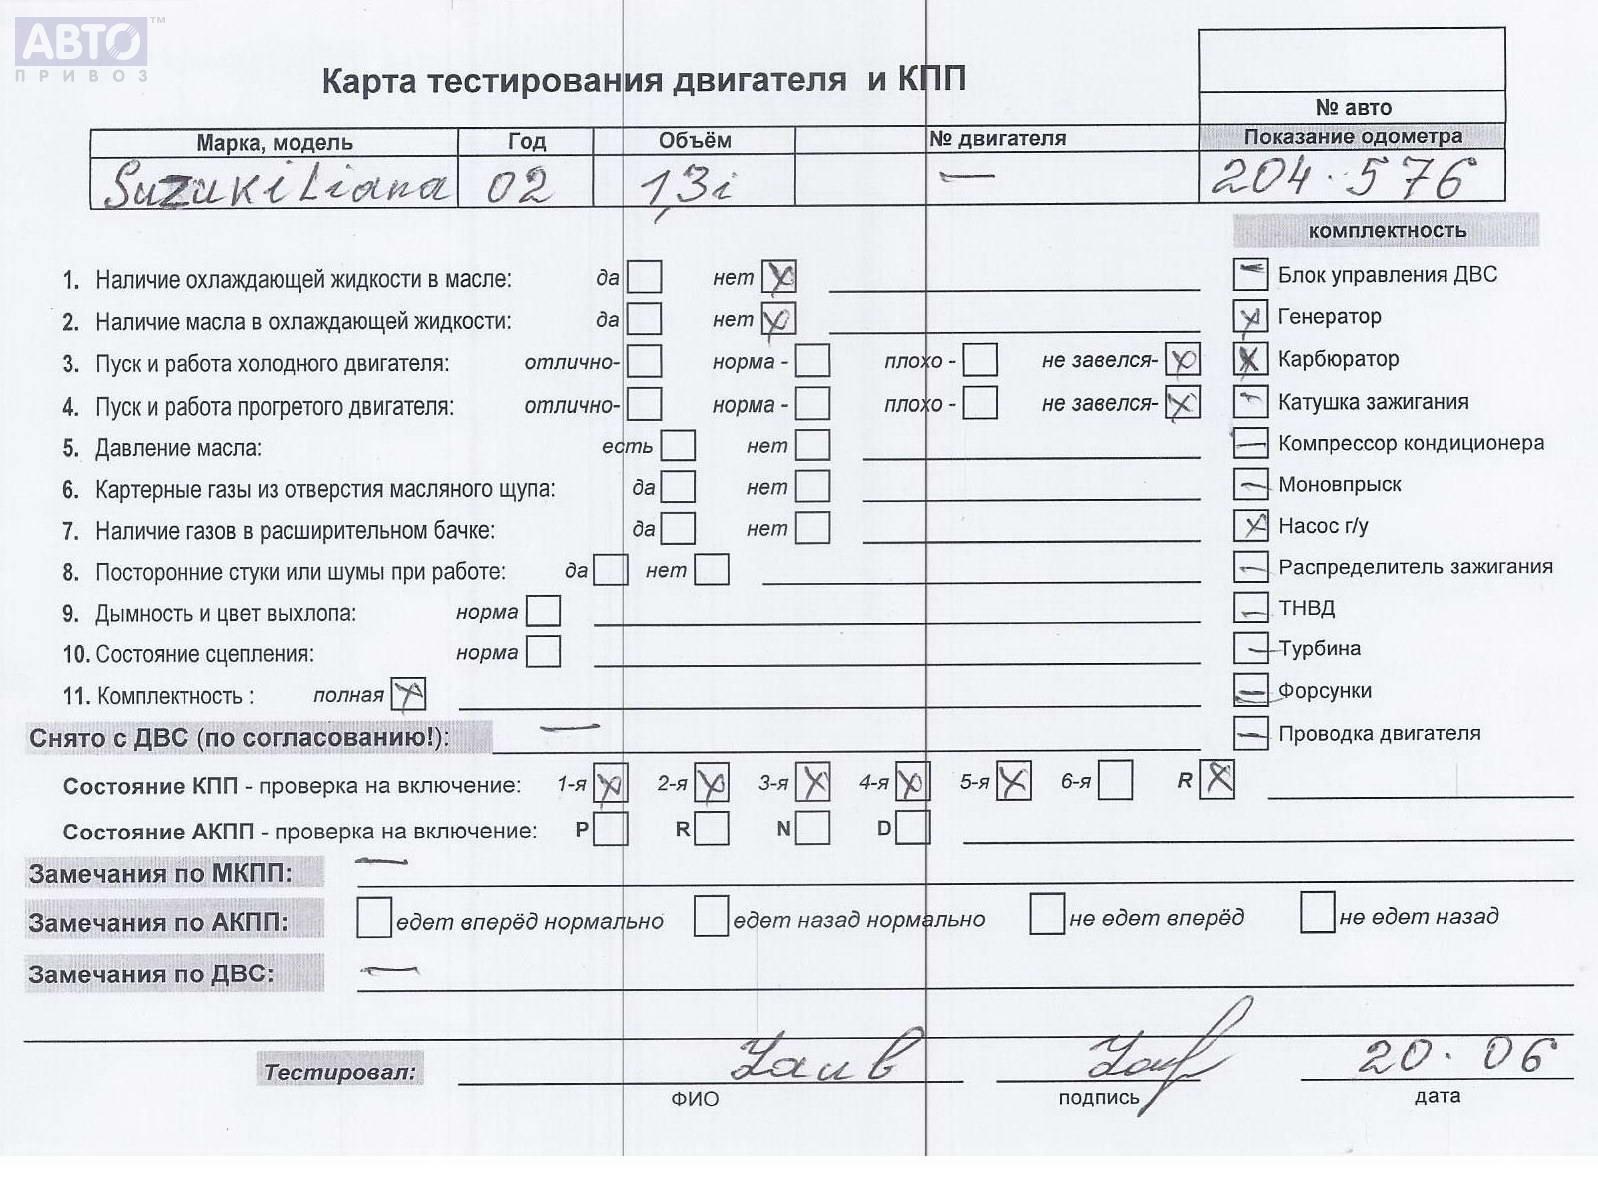 АВТО™
ПРИВОЗ
Карта тестирования двигателя и КПП
№ авто
Марка, модель Год Объём № двигателя Показание одометра
Suzuki Liana 02 1,3i — 204.576
комплектность
1. Наличие охлаждающей жидкости в масле: да нет X
2. Наличие масла в охлаждающей жидкости: да нет X
3. Пуск и работа холодного двигателя: отлично- норма - плохо - не завелся- X
4. Пуск и работа прогретого двигателя: отлично- норма - плохо - не завелся- X
5. Давление масла: есть нет
6. Картерные газы из отверстия масляного щупа: да нет
7. Наличие газов в расширительном бачке: да нет
8. Посторонние стуки или шумы при работе: да нет
9. Дымность и цвет выхлопа: норма
10. Состояние сцепления: норма
11. Комплектность : полная X
— Блок управления ДВС
X Генератор
X Карбюратор
— Катушка зажигания
— Компрессор кондиционера
— Моновпрыск
X Насос г/у
— Распределитель зажигания
— ТНВД
— Турбина
— Форсунки
— Проводка двигателя
Снято с ДВС (по согласованию!): —
Состояние КПП - проверка на включение: 1-я X 2-я X 3-я X 4-я X 5-я X 6-я R X
Состояние АКПП - проверка на включение: P R N D
Замечания по МКПП: —
Замечания по АКПП: едет вперёд нормально едет назад нормально не едет вперёд не едет назад
Замечания по ДВС: —
Тестировал: 20.06
ФИО подпись дата